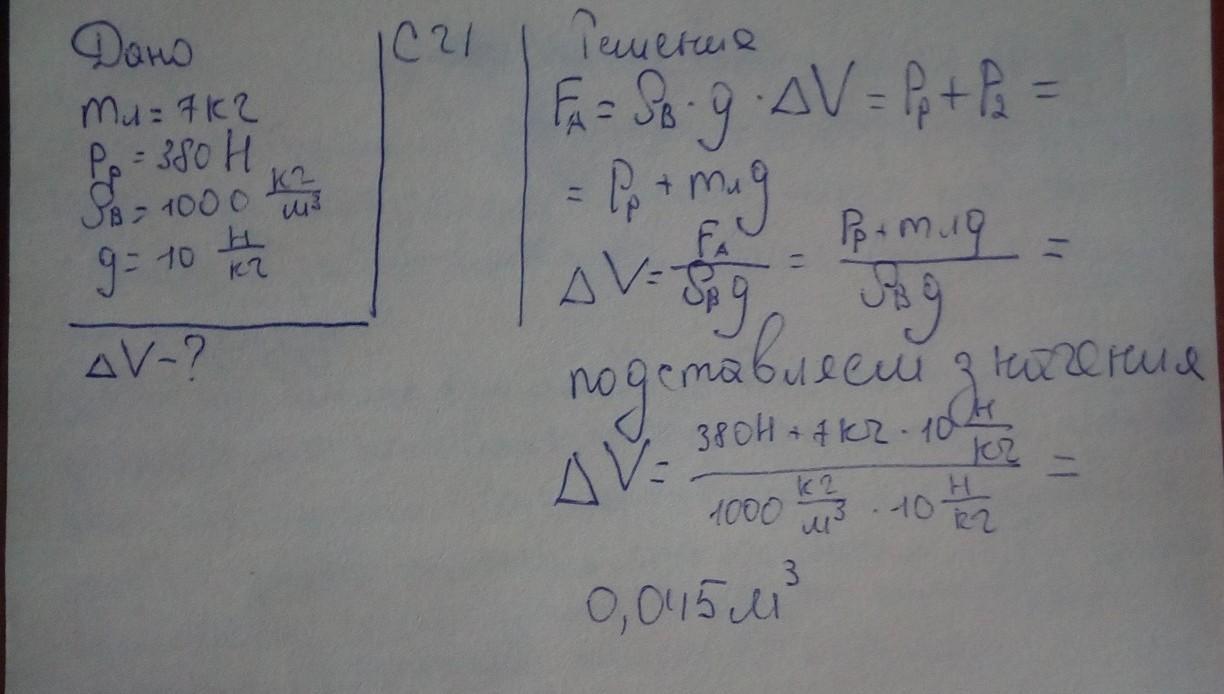 Дано
mл = 7 кг
Pр = 380 Н
ρв = 1000 кг/м³
g = 10 Н/кг
ΔV - ?
СИ
Решение
FA = ρв · g · ΔV = Pр + P2 =
= Pр + mлg
ΔV = FA/ρвg = Pр + mлg/ρвg =
подставляем значения
ΔV = 380Н + 7кг · 10 Н/кг / 1000 кг/м³ · 10 Н/кг =
0,045 м³